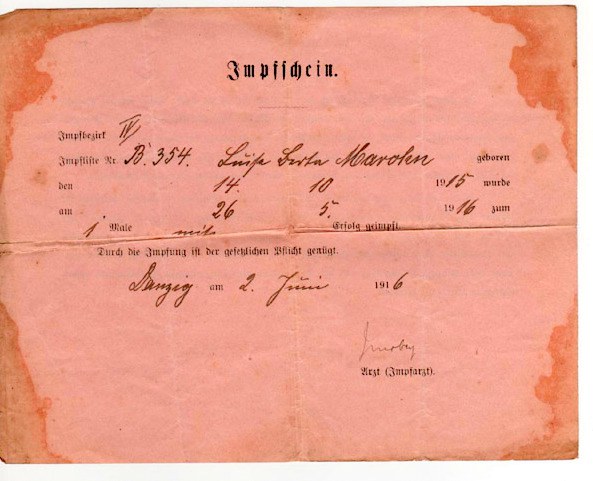 Impfschein.
Impfbezirk IV
Impfliste Nr. B. 354. Luise Berta Marohn geboren
den 14. 10 1915 wurde
am 26 5. 1916 zum
1 Male mit Erfolg geimpft.
Durch die Impfung ist der gesetzlichen Pflicht genügt.
Danzig am 2. Juni 1916
Arzt (Impfarzt).